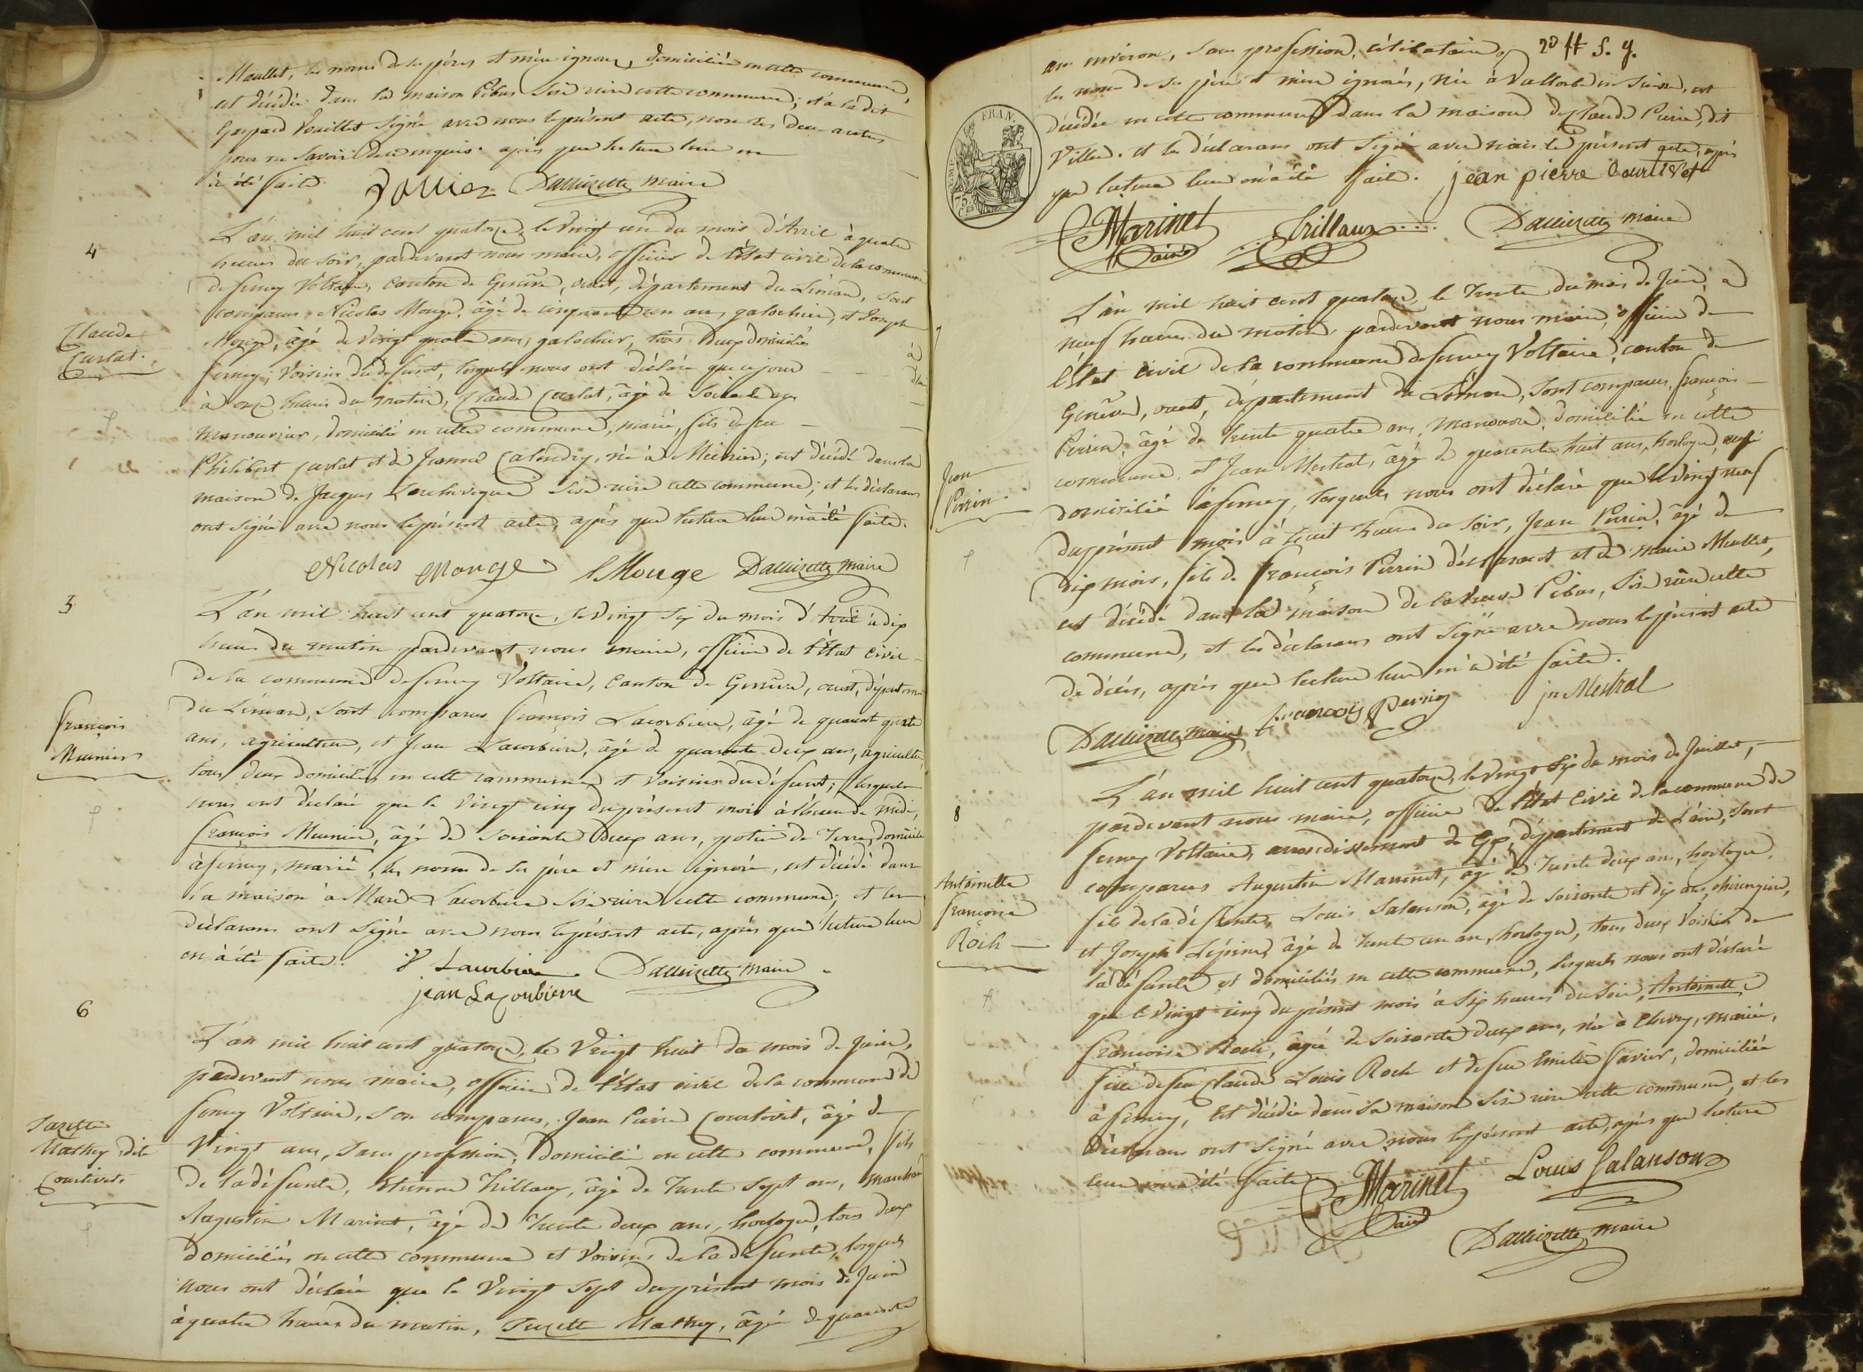 Maullet, les noms de ses pères et mère ignorés, domiciliée en cette commune,
est décédée dans la maison Pibus Sise rière cette commune; et a le dit
Gaspard Vouillet Signé avec nous le présent acte, non les deux autres
pour ne savoir de ce enquis. après que lecture leur en
à été faite. Dallizette maire
4
L'an mil huit cent quatorze, le vingt un du mois d'Avril à quatre
heures du Soir, pardevant nous maire, officier de l'état civil de la commune
de ferney Voltaire, Canton de Genève, ouest, département du Léman, Sont
comparus Nicolas Mouge, âgé de cinquante un ans, galochier, et Joseph
Mouge, âgé de vingt quatre ans, galochier, tous deux domiciliés à
ferney, voisins du défunt, lesquels nous ont déclaré que ce jour
Claude
Curlat.
à onze heures du matin, Claude Curlat, âgé de Soixante ans
manouvrier, domicilié en cette commune, marié, fils de feu
Philibert Curlat et de Jeanne Calendry, né à Meinier; est décédé dans la
maison de Jacques Sise rière cette commune; et les déclarans
ont Signé avec nous le présent acte, après que lecture leur en à été faite.
Nicolas Mouge J Mouge Dallizette maire
5
L'an mil huit cent quatorze, le vingt Six du mois d'Avril à dix
heures du matin pardevant nous maire, officier de l'état Civil
de la commune de ferney Voltaire, Canton de Genève, ouest, département
du Léman, Sont comparus François Lacorbière, âgé de quarante quatre
ans, agriculteur, et Jean Lacorbière, âgé de quarante deux ans, agriculteur,
françois
Meunier
tous deux domiciliés en cette commune et voisins du défunt; lesquels
nous ont déclaré que le vingt cinq du présent mois à l'heure de midi,
françois Meunier, âgé de Soixante deux ans, potier de Terre, domicilié
à ferney, marié, les noms de ses père et mère ignorés, est décédé dans
la maison à Marc Lacorbière Sise rière cette commune; et les
déclarans ont Signé avec nous le présent acte, après que lecture leur
en à été faite. f Lacorbière Dallizette maire
jean Lacorbierre
6
L'an mil huit cent quatorze, le Vingt huit du mois de Juin,
pardevant nous maire, officier de l'état civil de la commune de
ferney Voltaire, Son comparus, Jean Pierre Courtivet, âgé de
Suzette
Mathey dit
Courtivet.
Vingt ans, Sans profession, domicilié en cette commune, fils
de la défunte, Etienne Trillaux, âgé de Trente Sept ans,
Augustin Marinet, âgé de Trente deux ans, horloger, tous deux
domiciliés en cette commune et voisins de la défunte, lesquels
nous ont déclaré que le Vingt Sept du présent mois de Juin
à quatre heures du matin, Suzette Mathey, âgée de quarante
20 ft S. g.
ans environ, Sans profession, célibataire,
les noms de ses père et mère ignorés, née à Vallorbe en Suisse, est
décédée en cette commune dans la maison de Claude Pierre, dit
Viller. et les déclarans ont Signé avec nous le présent acte, après
que lecture leur en à été faite. jean pierre Courtivet
FRAN.
75 C
Marinet
Trillaux
Dallizette maire
7
L'an mil huit cent quatorze, le Trente du mois de Juin, à
neuf heures du matin, pardevant nous maire, officier de
l'état Civil de la commune de ferney Voltaire, canton de
Genève, ouest, département du Léman, Sont comparus, françois
Perrin, âgé de Trente quatre ans, manœuvre, domicilié en cette
Jean
Perrin
commune, et Jean Mestral, âgé de quarante huit ans, horloger, aussi
domicilié à ferney, lesquels nous ont déclaré que le Vingt neuf
du présent mois à huit heures du Soir, Jean Perrin, âgé de
Dix mois, fils de françois Perrin déclarant et de marie Mullet,
est décédé dans la maison de la Veuve Pibus, Sise rière cette
commune, et les déclarans ont Signé avec nous le présent acte
de décès, après que lecture leur en à été faite.
Dallizette maire francois Perrin jn Mestral
8
L'an mil huit cent quatorze, le vingt Six du mois de Juillet,
pardevant nous maire, officier de l'état Civil de la commune de
ferney Voltaire, arrondissement de Gex, département de l'ain, Sont
comparus Augustin Marinet, âgé de Trente deux ans, horloger,
Antoinette
francoise
Roch
fils de la défunte, Louis Salanson, âgé de Soixante et dix ans, chirurgien,
et Joseph Lépine, âgé de Trente un an, horloger, tous deux Voisins de
la défunte et domiciliés en cette commune, lesquels nous ont déclaré
que le Vingt cinq du présent mois à Six heures du Soir, Antoinette
francoise Roch, âgée de Soixante deux ans, née à Chevry, mariée,
fille de feu Claude Louis Roch et de feu Emilie Savier, domiciliée
à ferney, Est décédée dans Sa maison Sise rière cette commune, et les
Déclarans ont Signé avec nous le présent acte, après que lecture
leur en à été faite. Marinet Louis Salanson
Dallizette maire